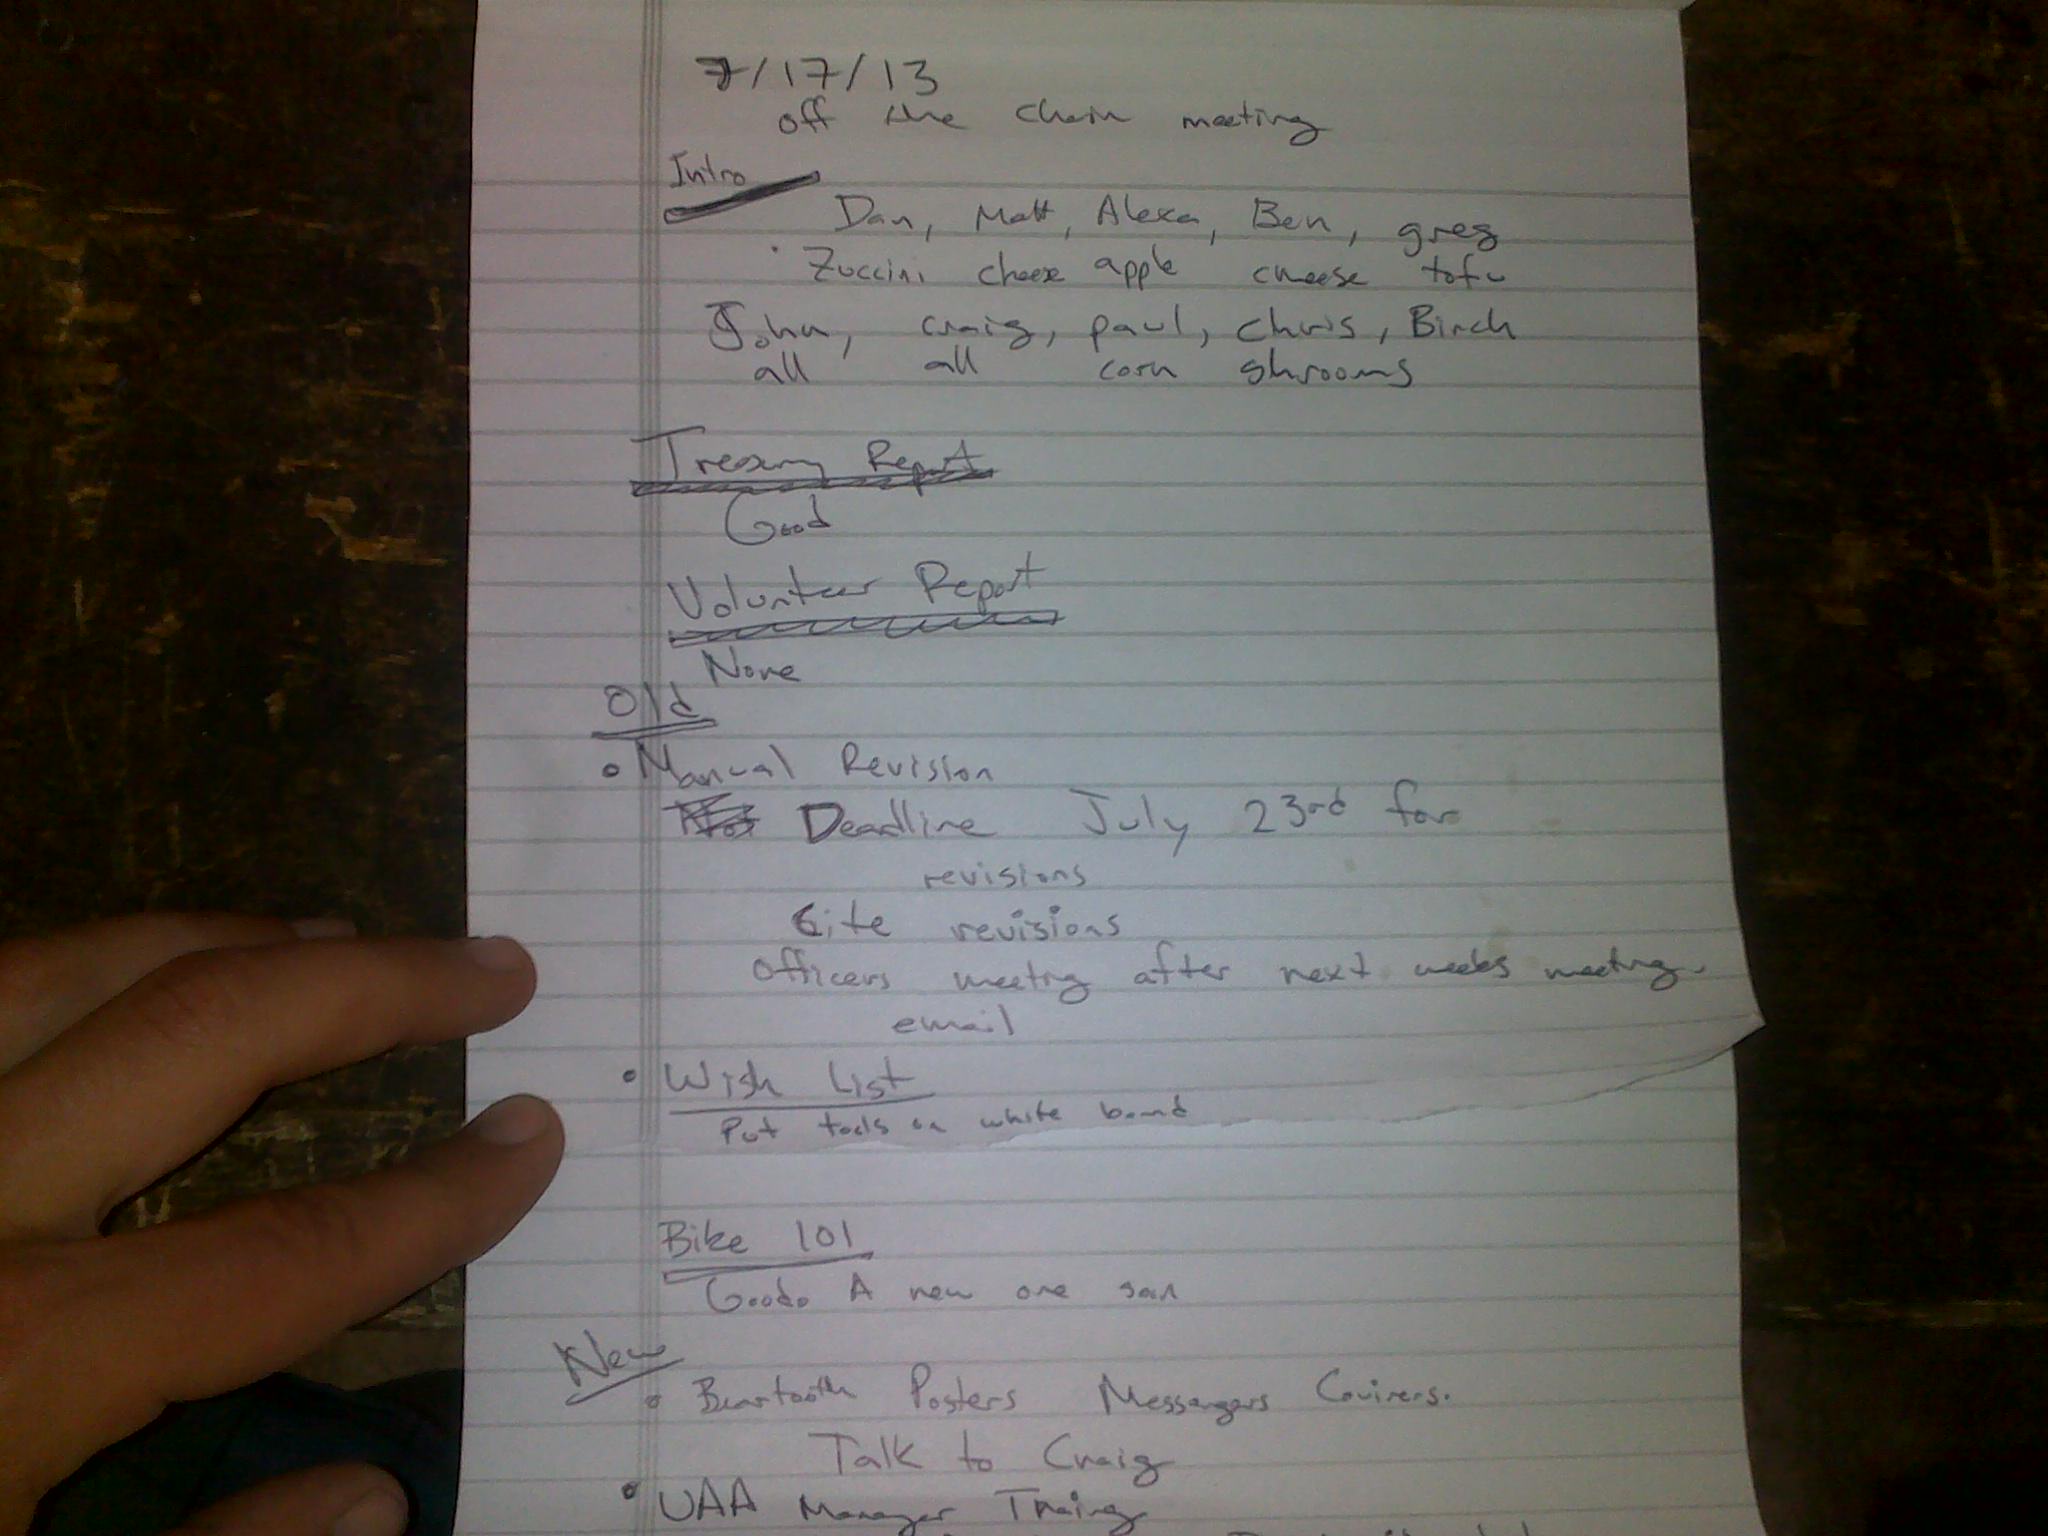 7/17/13
off the chain meeting
Intro
Dan, Matt, Alexa, Ben, greg
Zuccini cheese apple cheese tofu
John, craig, paul, chris, Birch
all all corn shrooms
Treasury Report
Good
Volunteer Report
None
Old
Manual Revision
Deadline July 23rd for
revisions
Cite revisions
Officers meeting after next weeks meeting.
email
Wish List
Put tools on white board
Bike 101
Good. A new one
New
Beartooth Posters Messengers Couirers.
Talk to Craig
UAA Manager Training